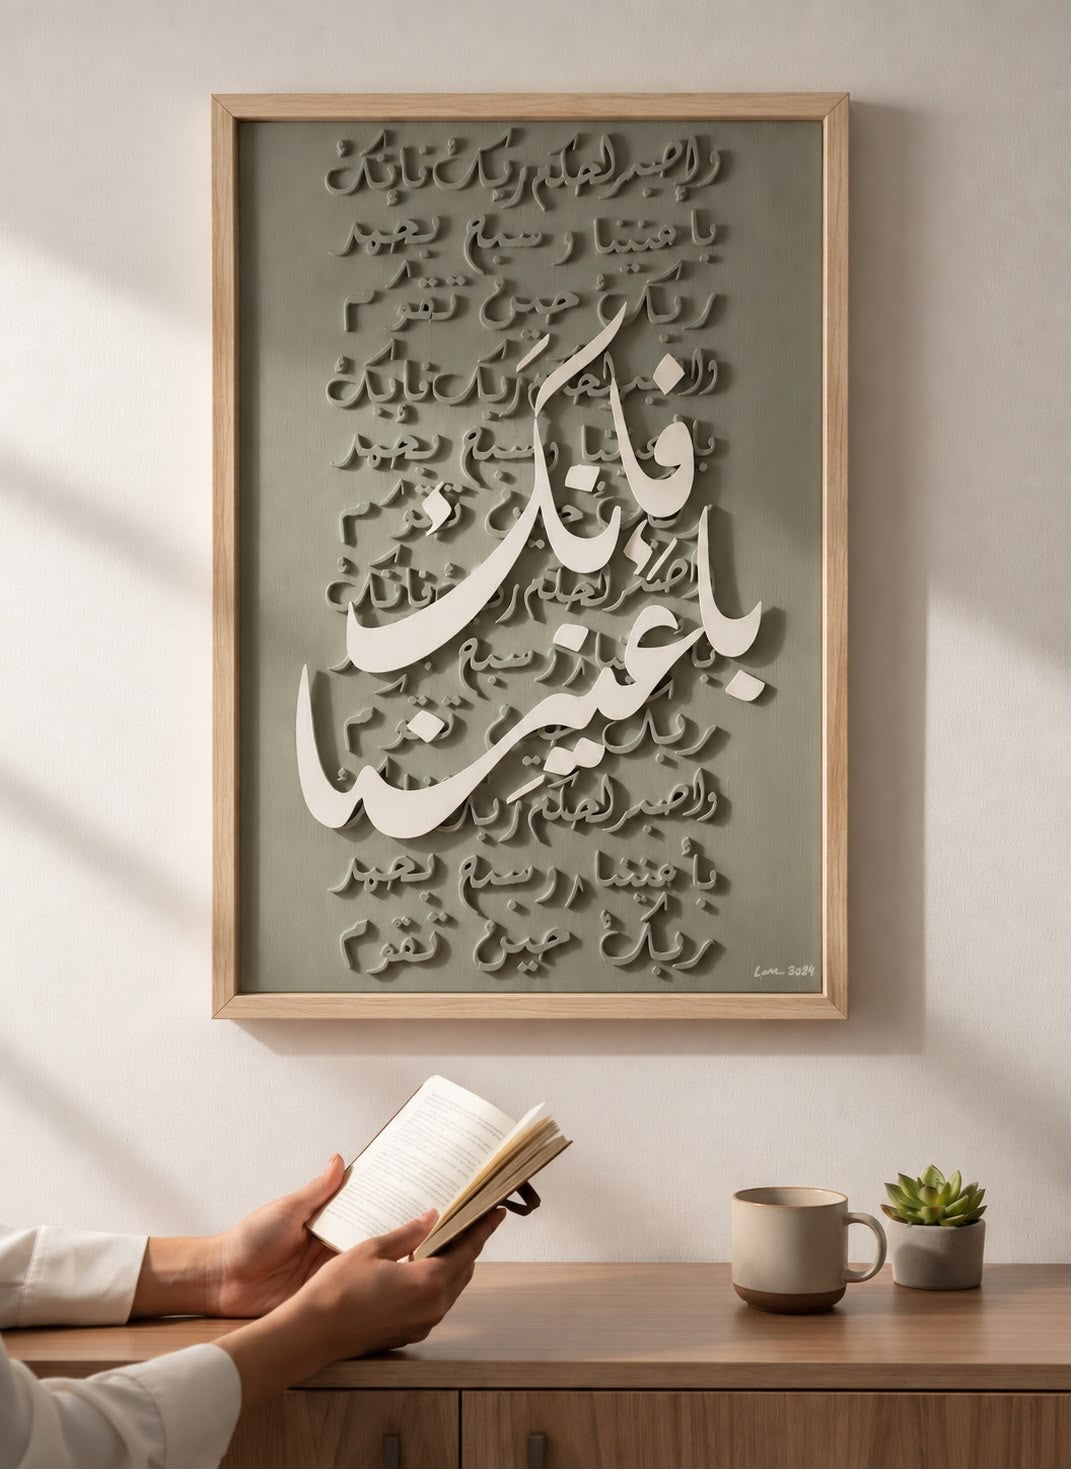 واصبر لحكم ربك فإنك
بأعيننا وسبح بحمد
ربك حين تقوم
واصبر لحكم ربك فإنك
بأعيننا وسبح بحمد
تقوم
فَإنك
بأعيننا
واصبر لحكم فإنك
وسبح
ربك تقوم
واصبر لحكم ربك
بأعيننا وسبح بحمد
ربك حين تقوم
3024